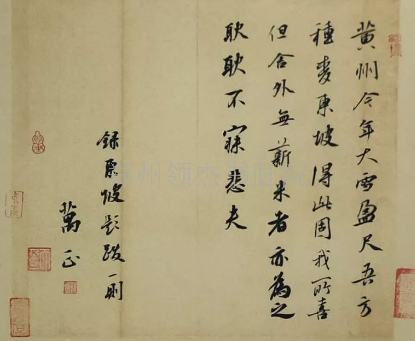 黄州今年大雪盈尺吾方
種麥東坡得此固我所喜
但舍外無薪米者亦為之
耿耿不寐悲夫
錄東坡題跋一則
萬正